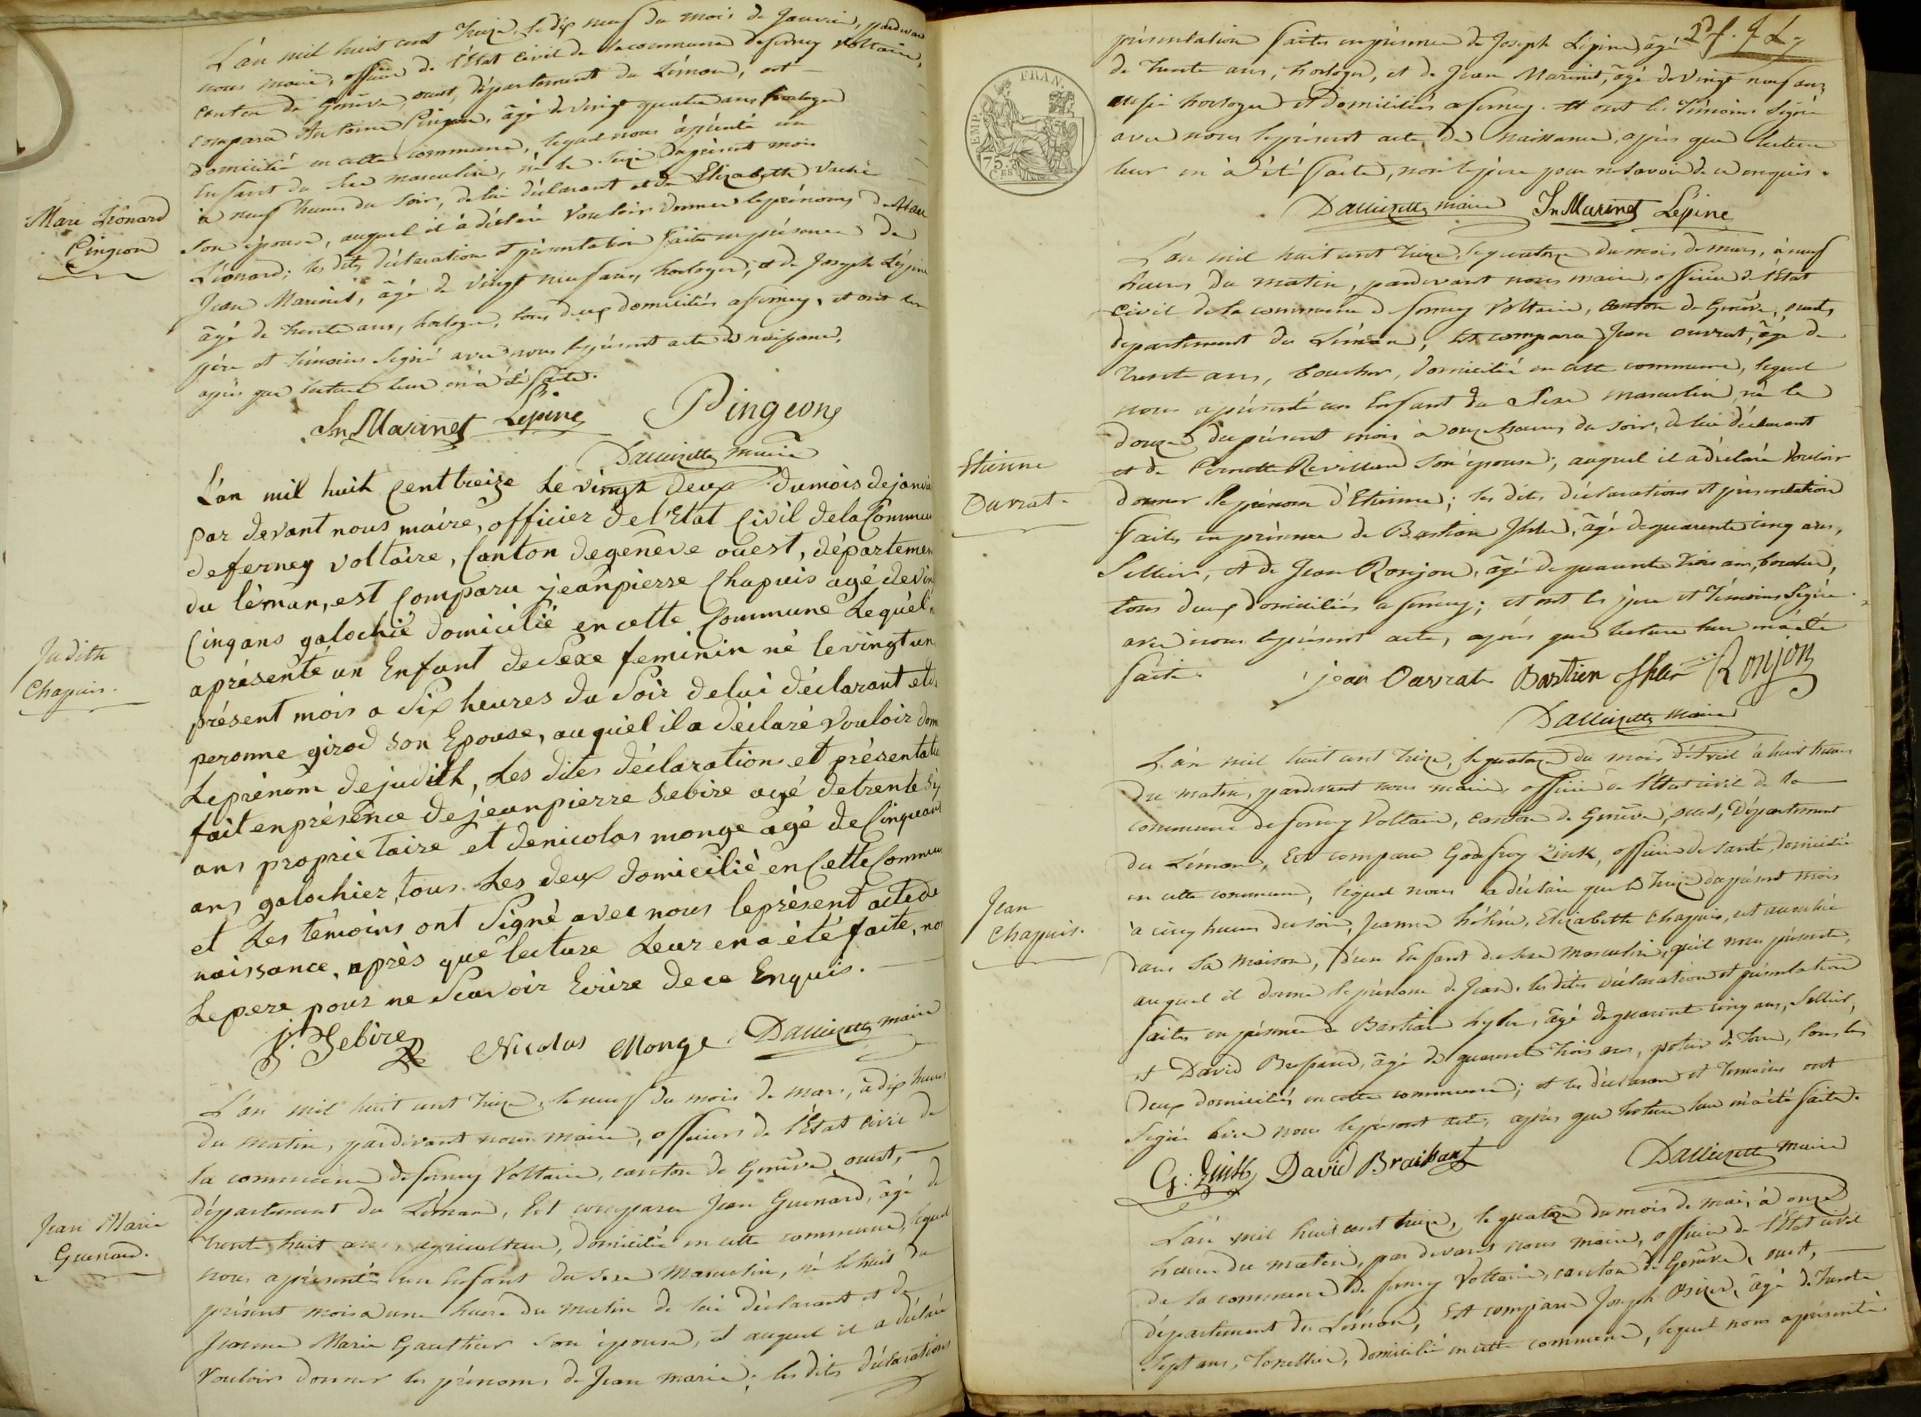 L'an mil huit cent treize, le dix neuf du mois de Janvier, pardevant
nous maire, officier de l'Etat Civil de la commune de ferney Voltaire,
canton de Genêve, ouest, département du Léman, est
comparu Antoine Pingeon, âgé de vingt quatre ans horloger
domicilié en cette commune, lequel nous à présenté un
Enfant du sexe masculin, né le seize du présent mois
à neuf heures du soir, de lui déclarant et de Elizabeth
son épouse, auquel il à déclaré vouloir donner le prénoms de Marc
Marc Léonard
Pingeon
Léonard; les dites déclaration et présentation faites en présence de
Jean Marinet, âgé de vingt neuf ans, horloger, et de Joseph Lépine
âgé de trente ans, horloger, tous deux domiciliés a ferney, et ont les
père et témoins signé avec nous le présent acte de naissance,
après que lecture leur en a été faite.
Jn Marinet Lépine Pingeon
maire
L'an mil huit Cent treize le vingt deux du mois de janvier
par devant nous maire, officier de l'Etat Civil de la Commune
de ferney voltaire, Canton de genêve ouest, département
du léman, est Comparu jean pierre Chapuis agé de vingt
Cinq ans galochié domicilié en cette Commune Lequel à
Judith
Chapuis.
a présenté un Enfant de Sexe feminin né le vingt un
présent mois a Six heures du Soir de lui déclarant et de
peronne girod son Epouse, auquel il a déclaré vouloir donner
Le prénom de judith, Les dites déclarations et présentation
fait en présence de jean pierre Sebire agé de trente six
ans propriétaire et de nicolas monge agé de Cinquante
ans galochier, tous Les deux domicilié en Cette Commune
et Les témoins ont Signé avec nous le présent acte de
naissance, après que lecture Leur en a été faite, non
Le pere pour ne Scavoir Ecrire de ce Enquis.
Sebire Nicolas Monge maire
L'an mil huit cent treize, le neuf du mois de mars, à dix heures
du matin, pardevant nous maire, officier de l'Etat civil de
la commune de ferney Voltaire, canton de Genêve, ouest,
département du Léman, Est comparu Jean Guenard, âgé de
trente huit ans, agriculteur, domicilié en cette commune, lequel
Jean Marie
Guenard.
nous a présenté un Enfant du sexe Masculin, né le huit du
présent mois a une heure du matin de lui déclarant et de
Jeanne Marie Gauthier son épouse, et auquel il a déclaré
vouloir donner les prénoms de Jean marie; les dites déclarations
présentation faites en présence de Joseph Lépine, âgé
de trente ans, horloger, et de Jean Marinet, âgé de vingt neuf ans,
aussi horloger et domiciliés a ferney. Et ont les témoins signé
avec nous le présent acte de naissance, après que lecture
leur en à été faite, non le père pour ne savoir de ce enquis.
EMP. FRAN.
75.
CES
maire Jn Marinet Lépine
L'an mil huit cent treize, le quatorze du mois de mars, à neuf
heures du matin, pardevant nous maire, officier de l'Etat
Civil de la commune de ferney Voltaire, canton de Genêve, ouest,
département du Léman, Est comparu Jean Ouvrat, âgé de
trente ans, boucher, domicilié en cette commune, lequel
nous a présenté un Enfant du Sexe masculin né le
douze du présent mois à onze heures du soir, de lui déclarant
Etienne
Ouvrat.
et de Pernette son épouse; auquel il a déclaré vouloir
donner le prénom d'Etienne; les dites déclarations et présentation
faites en présence de Bastian, âgé de quarante cinq ans,
Sellier, et de Jean Ronjon, âgé de quarante trois ans, boucher,
tous deux domiciliés a ferney; et ont les père et témoins signé
avec nous le présent acte, après que lecture leur en a été
faite.
jean Ouvrat Bastien Ronjon
maire
L'an mil huit cent treize, le quatorze du mois d'Avril à huit heures
du matin, pardevant nous maire, officier de l'Etat civil de la
commune de ferney Voltaire, canton de Genêve, ouest, Département
du Léman, Est comparu Godefroy Zinck, officier de santé, domicilié
en cette commune, lequel nous a déclaré que le treize du présent mois
à cinq heures du soir, Jeanne Elizabeth Chapuis, est accouchée
Jean
Chapuis.
dans sa maison, d'un Enfant du sexe masculin, qu'il nous présente,
auquel il donne le prénom de Jean. les dites déclaration et présentation
faites en présence de Bastian, âgé de quarante cinq ans, Sellier,
et David, âgé de quarante trois ans, potier de terre, tous les
deux domiciliés en cette commune; et les déclarant et temoins ont
signé avec nous le présent acte, après que lecture leur en a été faite.
G: Zinck David maire
L'an mil huit cent treize, le quatorze du mois de mai, à onze
heures du matin, par devant nous maire, officier de l'Etat civil
de la commune de ferney Voltaire, canton de Genêve, ouest,
département du Léman, Est comparu Joseph, âgé de trente
sept ans, tonnellier, domicilié en cette commune, lequel nous a présenté